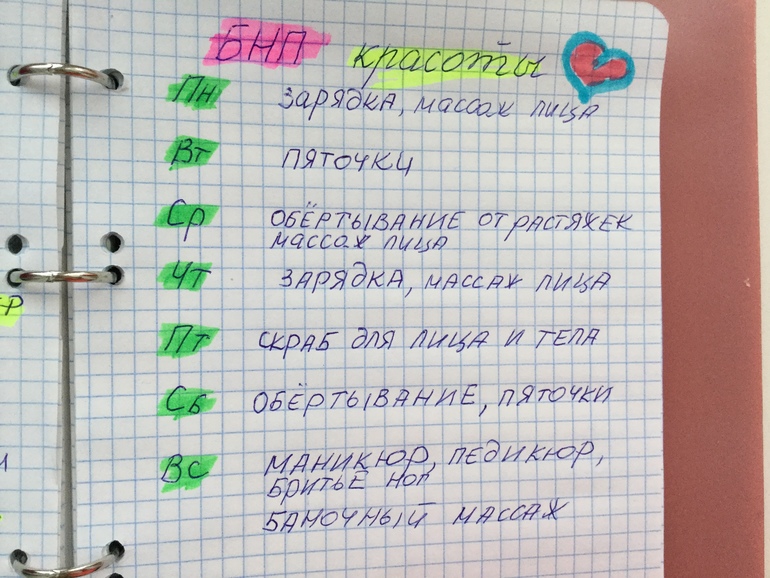 БНП красоты
Пн зарядка, массаж лица
Вт пяточки
Ср обёртывание от растяжек
массаж лица
Чт зарядка, массаж лица
Пт скраб для лица и тела
Сб обёртывание, пяточки
Вс маникюр, педикюр,
бритьё ног
баночный массаж